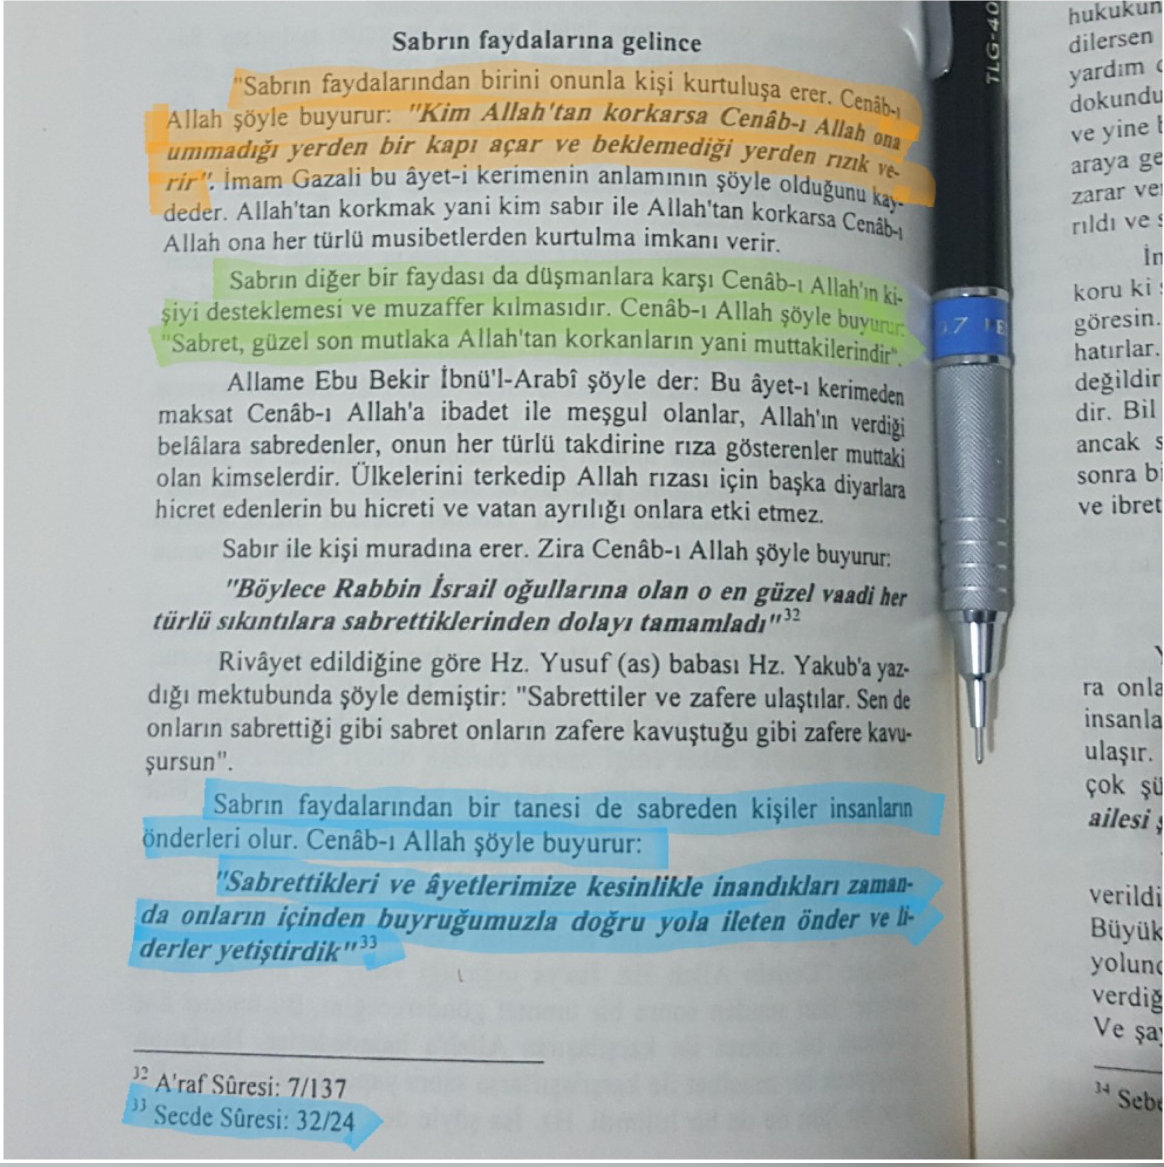 Sabrın faydalarına gelince
"Sabrın faydalarından birini onunla kişi kurtuluşa erer. Cenâb-ı
Allah şöyle buyurur: "Kim Allah'tan korkarsa Cenâb-ı Allah ona
ummadığı yerden bir kapı açar ve beklemediği yerden rızık ve-
rir". İmam Gazali bu âyet-i kerimenin anlamının şöyle olduğunu kay-
deder. Allah'tan korkmak yani kim sabır ile Allah'tan korkarsa Cenâb-ı
Allah ona her türlü musibetlerden kurtulma imkanı verir.
Sabrın diğer bir faydası da düşmanlara karşı Cenâb-ı Allah'ın ki-
şiyi desteklemesi ve muzaffer kılmasıdır. Cenâb-ı Allah şöyle buyurur:
"Sabret, güzel son mutlaka Allah'tan korkanların yani muttakilerindir".
Allame Ebu Bekir İbnü'l-Arabî şöyle der: Bu âyet-ı kerimeden
maksat Cenâb-ı Allah'a ibadet ile meşgul olanlar, Allah'ın verdiği
belâlara sabredenler, onun her türlü takdirine rıza gösterenler muttaki
olan kimselerdir. Ülkelerini terkedip Allah rızası için başka diyarlara
hicret edenlerin bu hicreti ve vatan ayrılığı onlara etki etmez.
Sabır ile kişi muradına erer. Zira Cenâb-ı Allah şöyle buyurur:
"Böylece Rabbin İsrail oğullarına olan o en güzel vaadi her
türlü sıkıntılara sabrettiklerinden dolayı tamamladı"32
Rivâyet edildiğine göre Hz. Yusuf (as) babası Hz. Yakub'a yaz-
dığı mektubunda şöyle demiştir: "Sabrettiler ve zafere ulaştılar. Sen de
onların sabrettiği gibi sabret onların zafere kavuştuğu gibi zafere kavu-
şursun".
Sabrın faydalarından bir tanesi de sabreden kişiler insanların
önderleri olur. Cenâb-ı Allah şöyle buyurur:
"Sabrettikleri ve âyetlerimize kesinlikle inandıkları zaman-
da onların içinden buyruğumuzla doğru yola ileten önder ve li-
derler yetiştirdik"33
32 A'raf Sûresi: 7/137
33 Secde Sûresi: 32/24
TLG-40
hukukun
dilersen
yardım
dokundu
ve yine
araya ge
zarar ve
rıldı ve
koru ki
göresin.
hatırlar.
değildir
dir. Bil
ancak
sonra bi
ve ibret
ra onla
insanla
ulaşır.
çok şü
ailesi
verildi
Büyük
yolund
verdiğ
Ve şay
34 Sebe